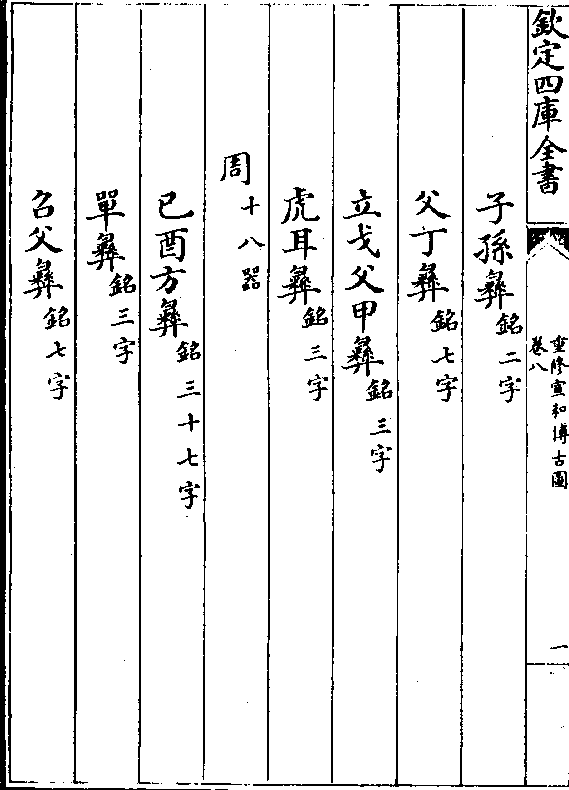 欽定四庫全書
重修宣和博古圖
卷八
一
子孫彝銘二字
父丁彝銘七字
立戈父甲彝銘三字
虎耳彝銘三字
周十八器
已酉方彝銘三十七字
單彝銘三字
召父彝銘七字